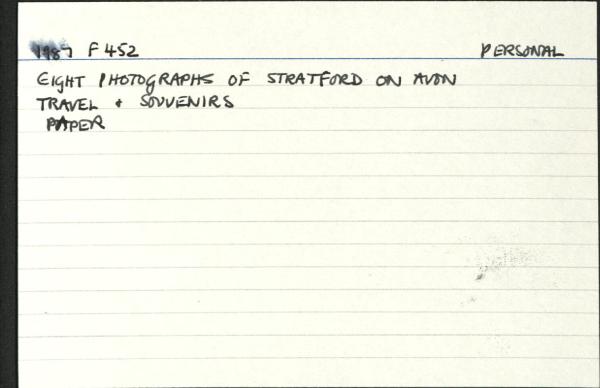 1987 F 452 PERSONAL
EIGHT PHOTOGRAPHS OF STRATFORD ON AVON
TRAVEL + SOUVENIRS
PAPER